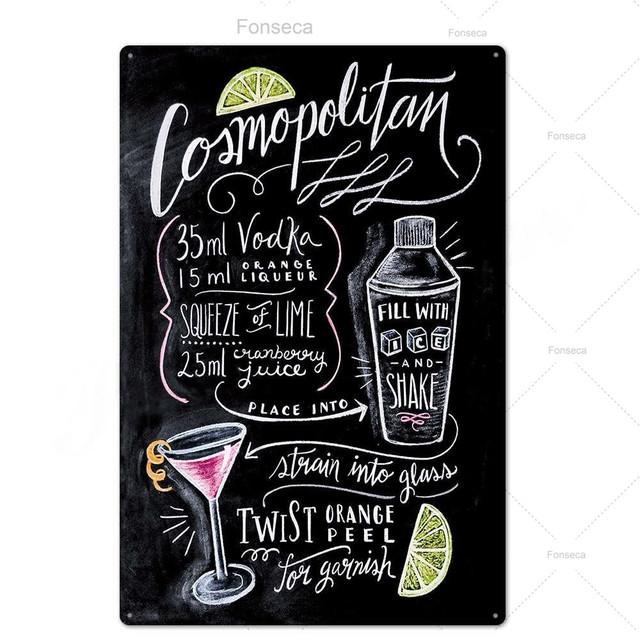 Fonseca
Fonseca
Cosmopolitan
35ml Vodka
15 ml ORANGE
LIQUEUR
SQUEEZE of LIME
25ml cranberry
juice
PLACE INTO
FILL WITH
ICE
-AND-
SHAKE
strain into glass
TWIST ORANGE
PEEL
for garnish
Fonseca
Fonseca
Fonseca
Fonseca